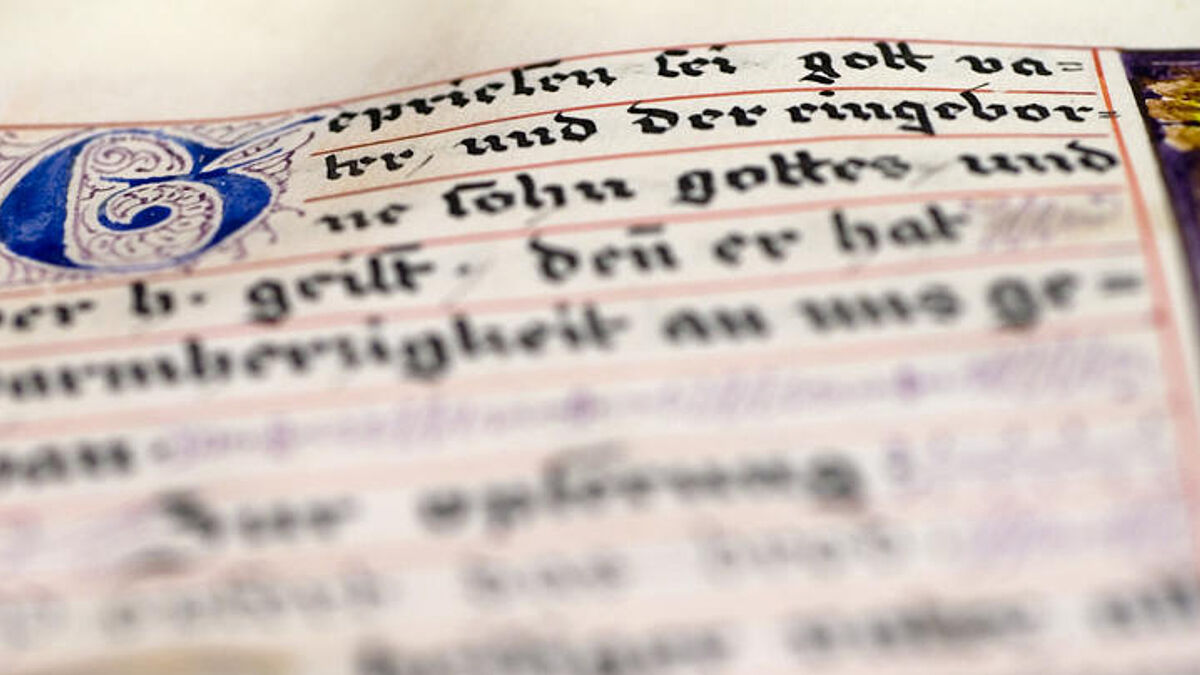 Geprieſen ſei gott va=
ter, und der eingebor=
ne ſohn gottes, und
der h. geiſt. deñ er hat
barmherzigkeit an uns ge=
than
Zur opferung